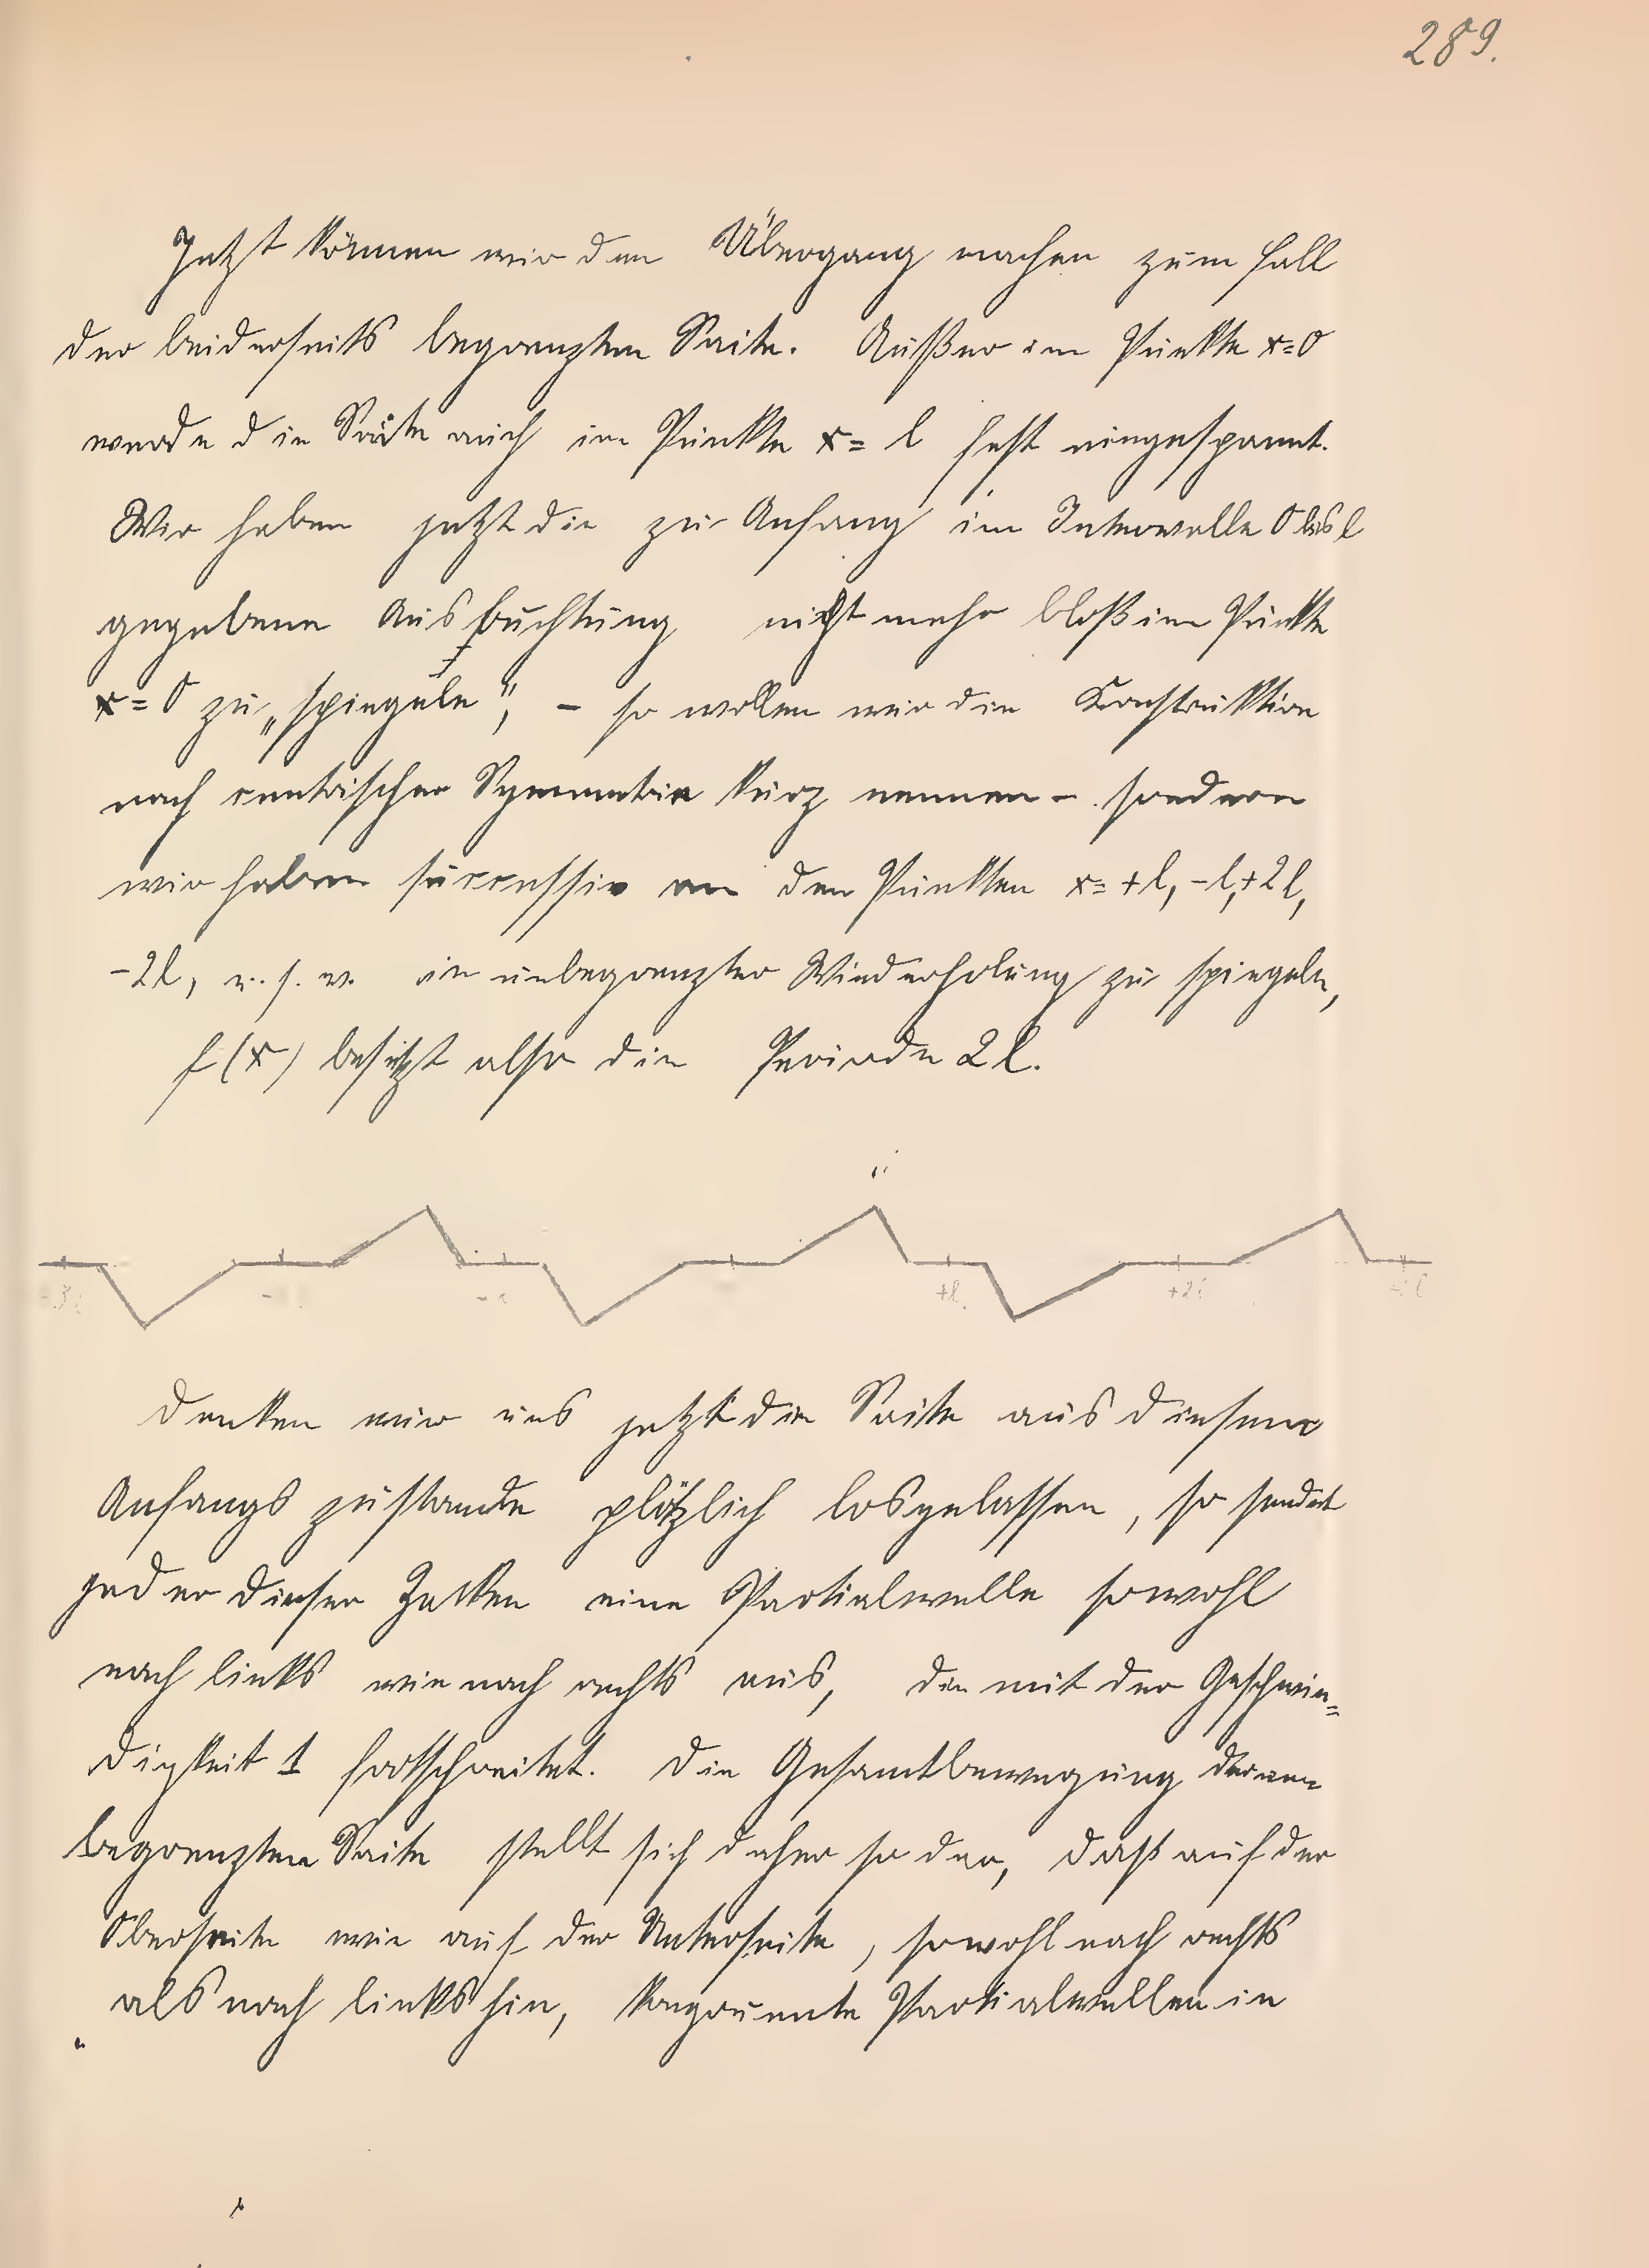 289.
Jetzt können wir den Übergang machen zum Fall
der beiderseits begrenzten Saite. Außer im Punkte x=0
werde die Saite auch im Punkte x= l fest eingespannt.
Wir haben jetzt die zu Anfang im Intervalle 0 bis l
gegebene Ausbuchtung nicht mehr bloß im Punkte
x=0 zu „spiegeln", - so wollen wir die Konstruktion
nach centrischer Symmetrie kurz nennen - sondern
wir haben successiv an den Punkten x= +l, -l, +2l,
-2l, u. s. w. in unbegrenzter Wiederholung zu spiegeln,
f(x) besitzt also die Periode 2l.
-3l +l. +2l
Denken wir uns jetzt die Saite aus diesem
Anfangszustande plötzlich losgelassen, so sendet
jeder dieser Zacken eine Partialwelle sowohl
nach links wie nach rechts aus, die mit der Geschwin=
digkeit 1 fortschreitet. Die Gesamtbewegung
begrenzten Saite stellt sich daher so dar, daß auf der
Oberseite wie auf der Unterseite, sowohl nach rechts
als nach links hin, kongruente Partialwellen in